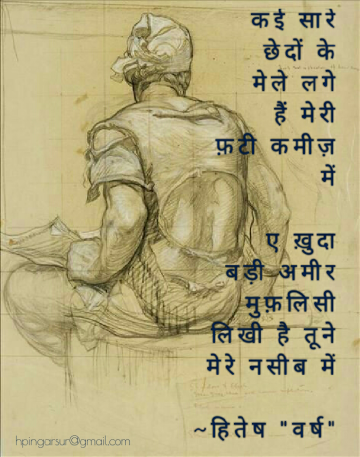 कई सारे
छेदों के
मेले लगे
हैं मेरी
फ़टी कमीज़
में
ए ख़ुदा
बड़ी अमीर
मुफ़लिसी
लिखी है तूने
मेरे नसीब में
~हितेष "वर्ष"
hpingarsur@gmail.com